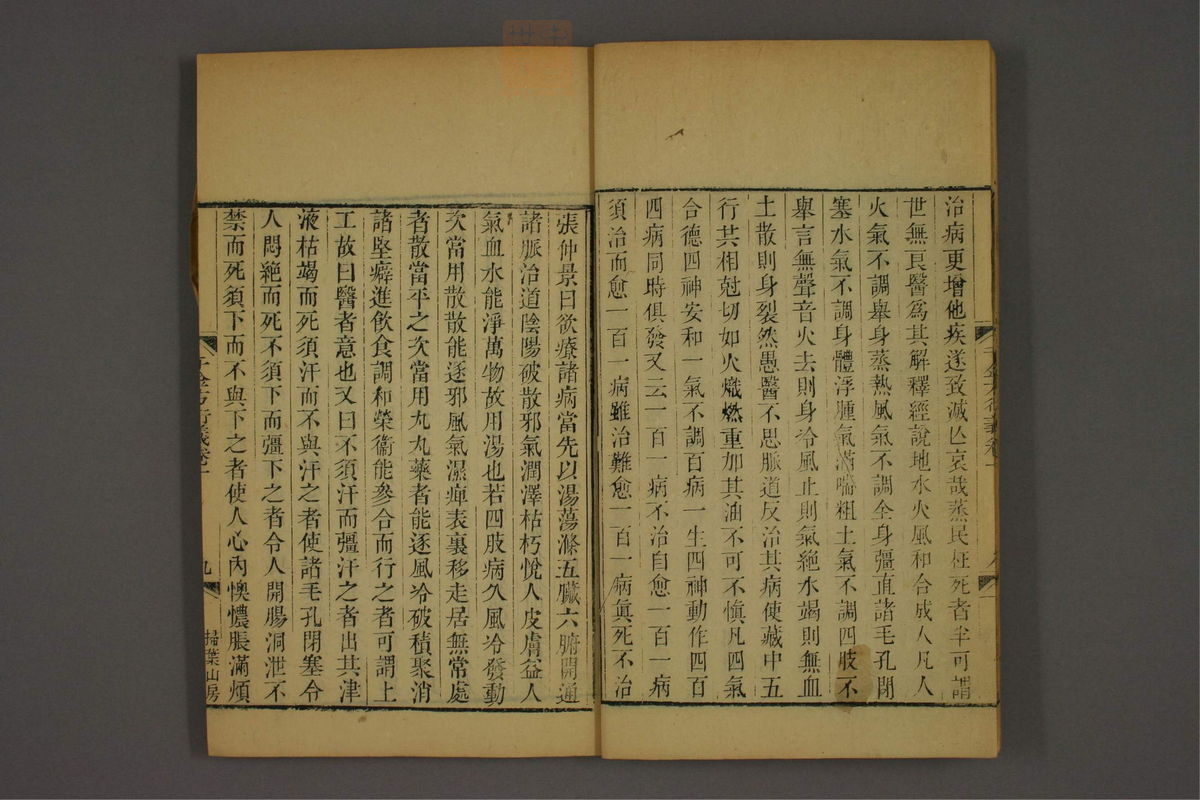 治病更增他疾遂致滅亾哀哉蒸民枉死者半可謂
世無良醫爲其解釋經說地水火風和合成人凡人
火氣不調舉身蒸熱風氣不調全身彊直諸毛孔閉
塞水氣不調身體浮腫氣滿喘粗土氣不調四肢不
舉言無聲音火去則身冷風止則氣絕水竭則無血
土散則身裂然愚醫不思脈道反治其病使藏中五
行其相尅切如火熾燃重加其油不可不慎凡四氣
合德四神安和一氣不調百病一生四神動作四百
四病同時俱發又云一百一病不治自愈一百一病
須治而愈一百一病雖治難愈一百一病眞死不治
張仲景曰欲療諸病當先以湯蕩滌五臟六腑開通
諸脈治道陰陽破散邪氣潤澤枯朽悅人皮膚益人
氣血水能淨萬物故用湯也若四肢病久風冷發動
次當用散散能逐邪風氣濕痺表裏移走居無常處
者散當平之次當用丸丸藥者能逐風冷破積聚消
諸堅癖進飲食調和榮衞能參合而行之者可謂上
工故曰醫者意也又曰不須汗而彊汗之者出其津
液枯竭而死須汗而不與汗之者使諸毛孔閉塞令
人悶絕而死不須下而彊下之者令人開腸洞泄不
禁而死須下而不與下之者使人心內懊憹脹滿煩
千金方衍義卷一
九
掃葉山房